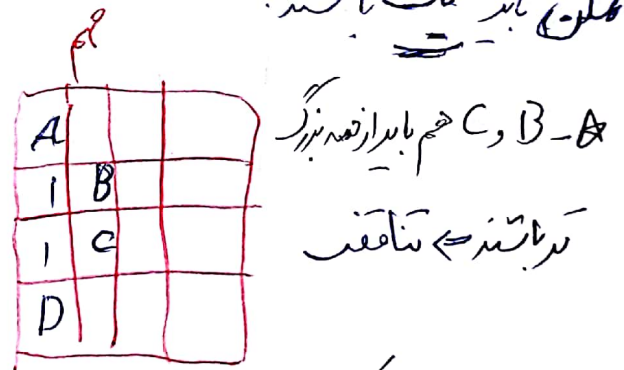 باید باشند.
م
A - B و C هم باید از همه بزرگ
تر باشند => تناقض
A
1 B
1 C
D